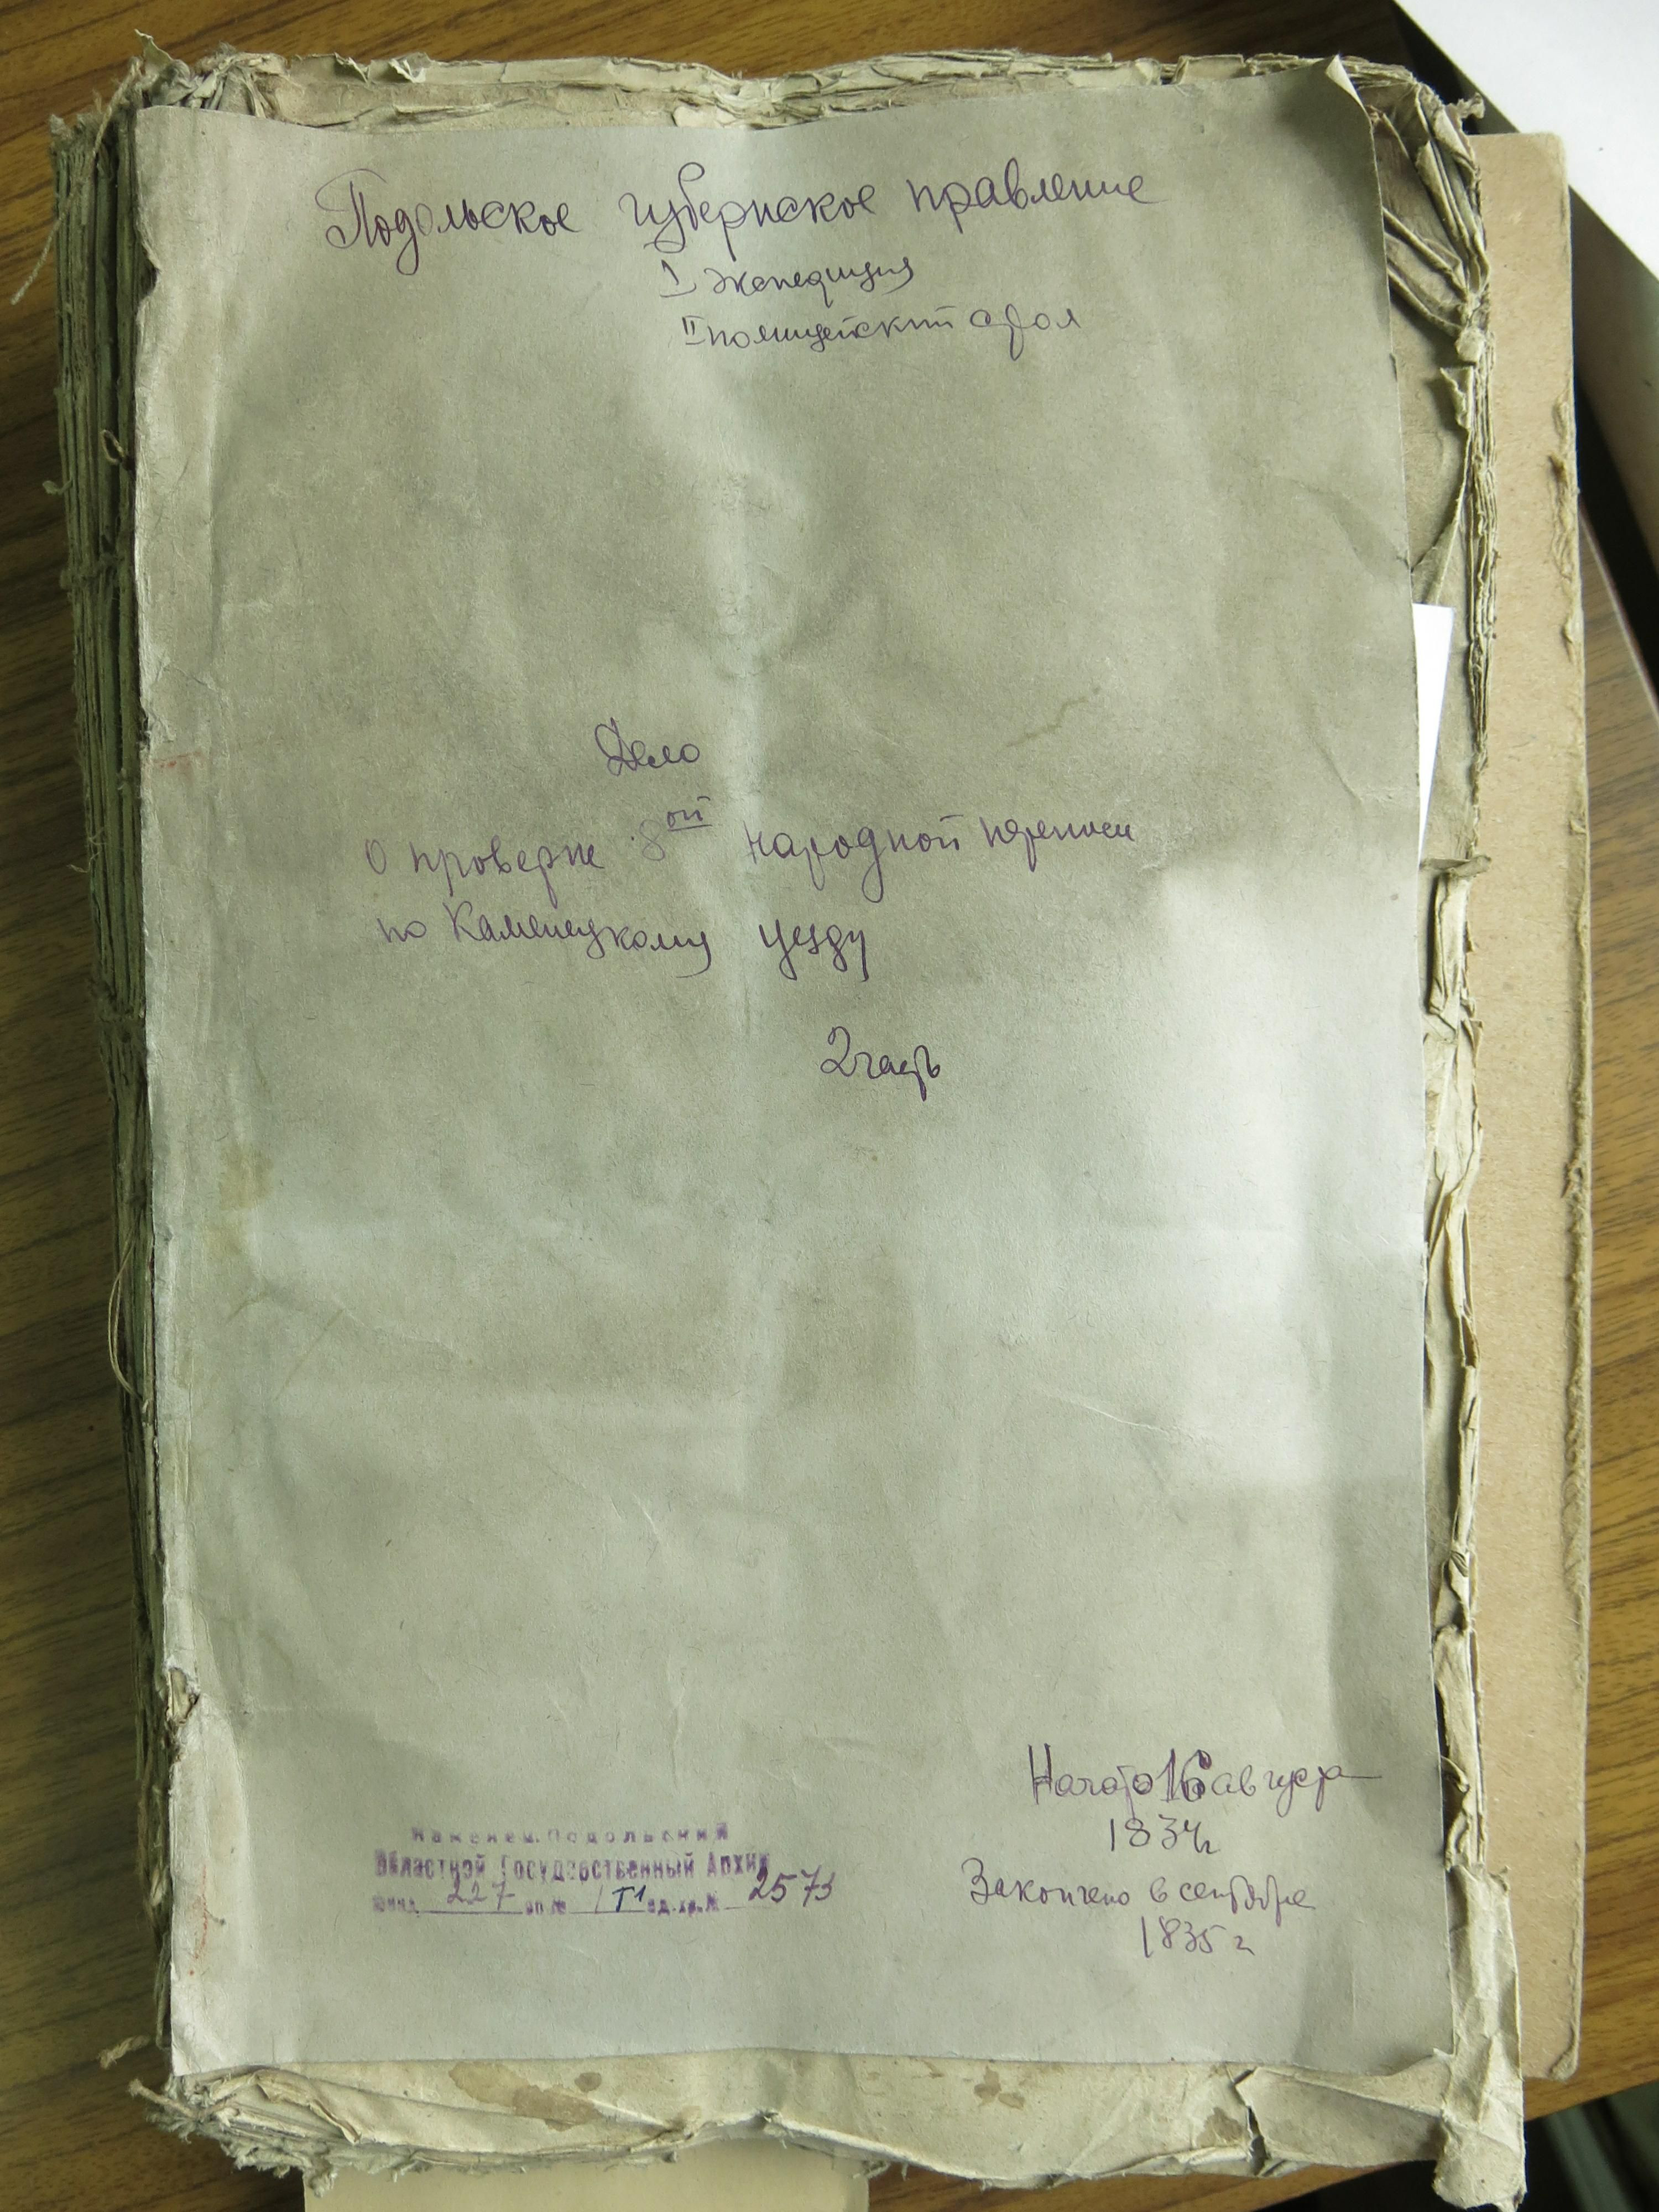 Подольское губернское правление
I экспедиция
II полицейский стол
Дело
О проверке 8ой народной переписи
по Каменецкому уезду
2 часть
Начато 16 августа
1834 г
Закончено в сентябре
1835 г
Каменец-Подольский
Областной Государственный Архив
фонд 227 оп № 1 т1 ед.хр.№ 2573